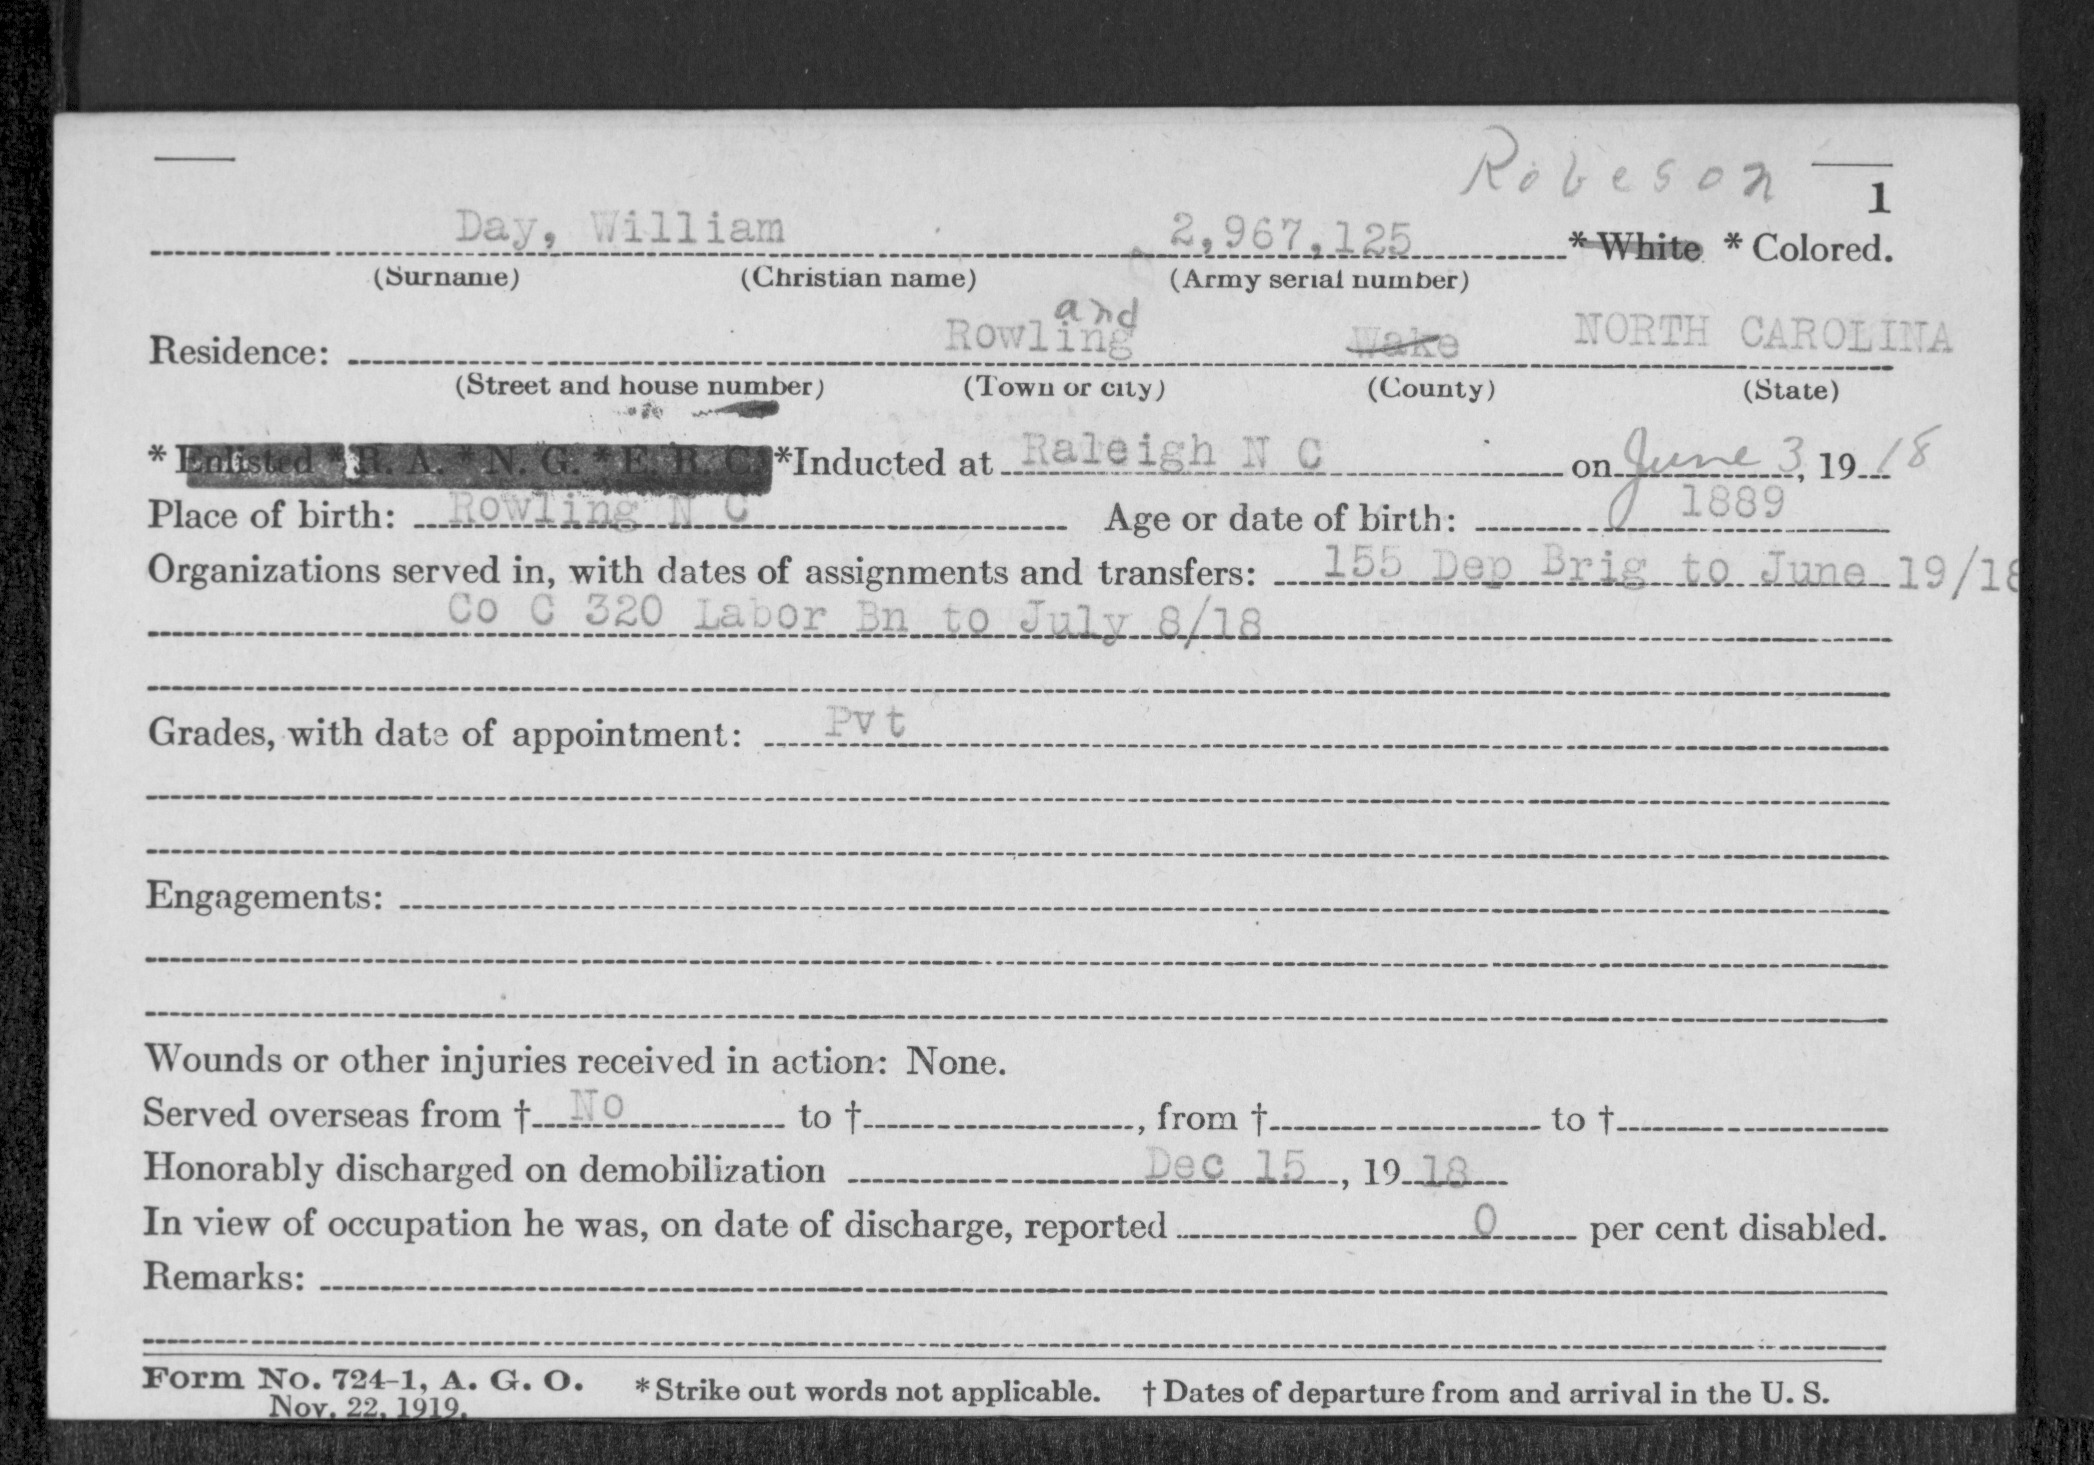 Robeson
1
Day, William 2,967,125 * White * Colored.
(Surname) (Christian name) (Army serial number)
and
Residence: Rowling Wake NORTH CAROLINA
(Street and house number) (Town or city) (County) (State)
* Enlisted * R. A. * N. G. * E. R. C. *Inducted at Raleigh N C on June 3, 1918
Place of birth: Rowling N C Age or date of birth: 1889
Organizations served in, with dates of assignments and transfers: 155 Dep Brig to June 19/18
Co C 320 Labor Bn to July 8/18
Grades, with date of appointment: Pvt
Engagements:
Wounds or other injuries received in action: None.
Served overseas from † No to †, from † to †
Honorably discharged on demobilization Dec 15, 1918
In view of occupation he was, on date of discharge, reported 0 per cent disabled.
Remarks:
Form No. 724-1, A. G. O. * Strike out words not applicable. † Dates of departure from and arrival in the U. S.
Nov. 22, 1919.